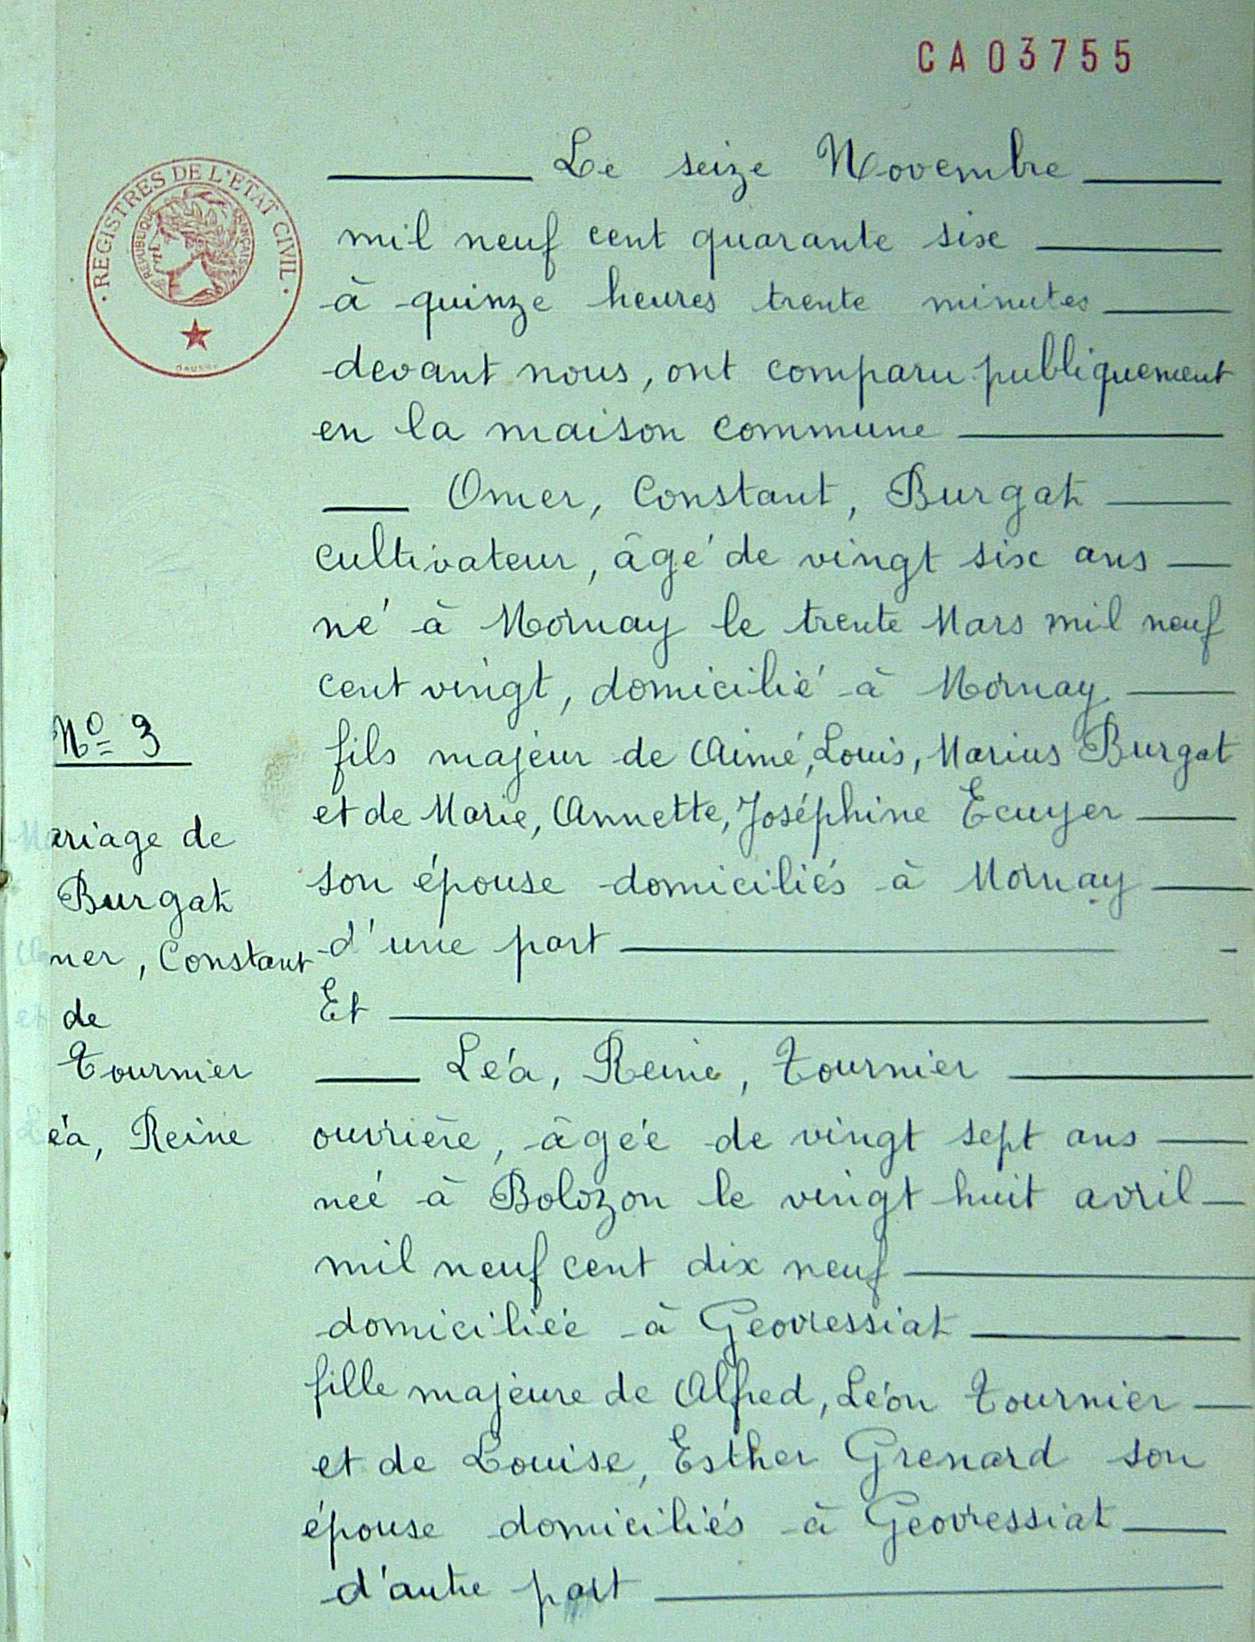 CA03755
REGISTRES DE L'ETAT CIVIL
REPUBLIQUE FRANÇAISE
Le seize Novembre
mil neuf cent quarante six
à quinze heures trente minutes
devant nous, ont comparu publiquement
en la maison commune
Omer, Constant, Burgat
cultivateur, âgé de vingt six ans
né à Mornay le trente Mars mil neuf
cent vingt, domicilié à Mornay
fils majeur de Aimé, Louis, Marius Burgat
et de Marie, Annette, Joséphine Ecuyer
son épouse domiciliés à Mornay
d'une part
Et
Léa, Reine, Tournier
ouvrière, âgée de vingt sept ans
née à Bolozon le vingt huit avril
mil neuf cent dix neuf
domiciliée à Géovressiat
fille majeure de Alfred, Léon Tournier
et de Louise, Esther Grenard son
épouse domiciliés à Géovressiat
d'autre part
No 3
Mariage de
Burgat
Omer, Constant
et de
Tournier
Léa, Reine